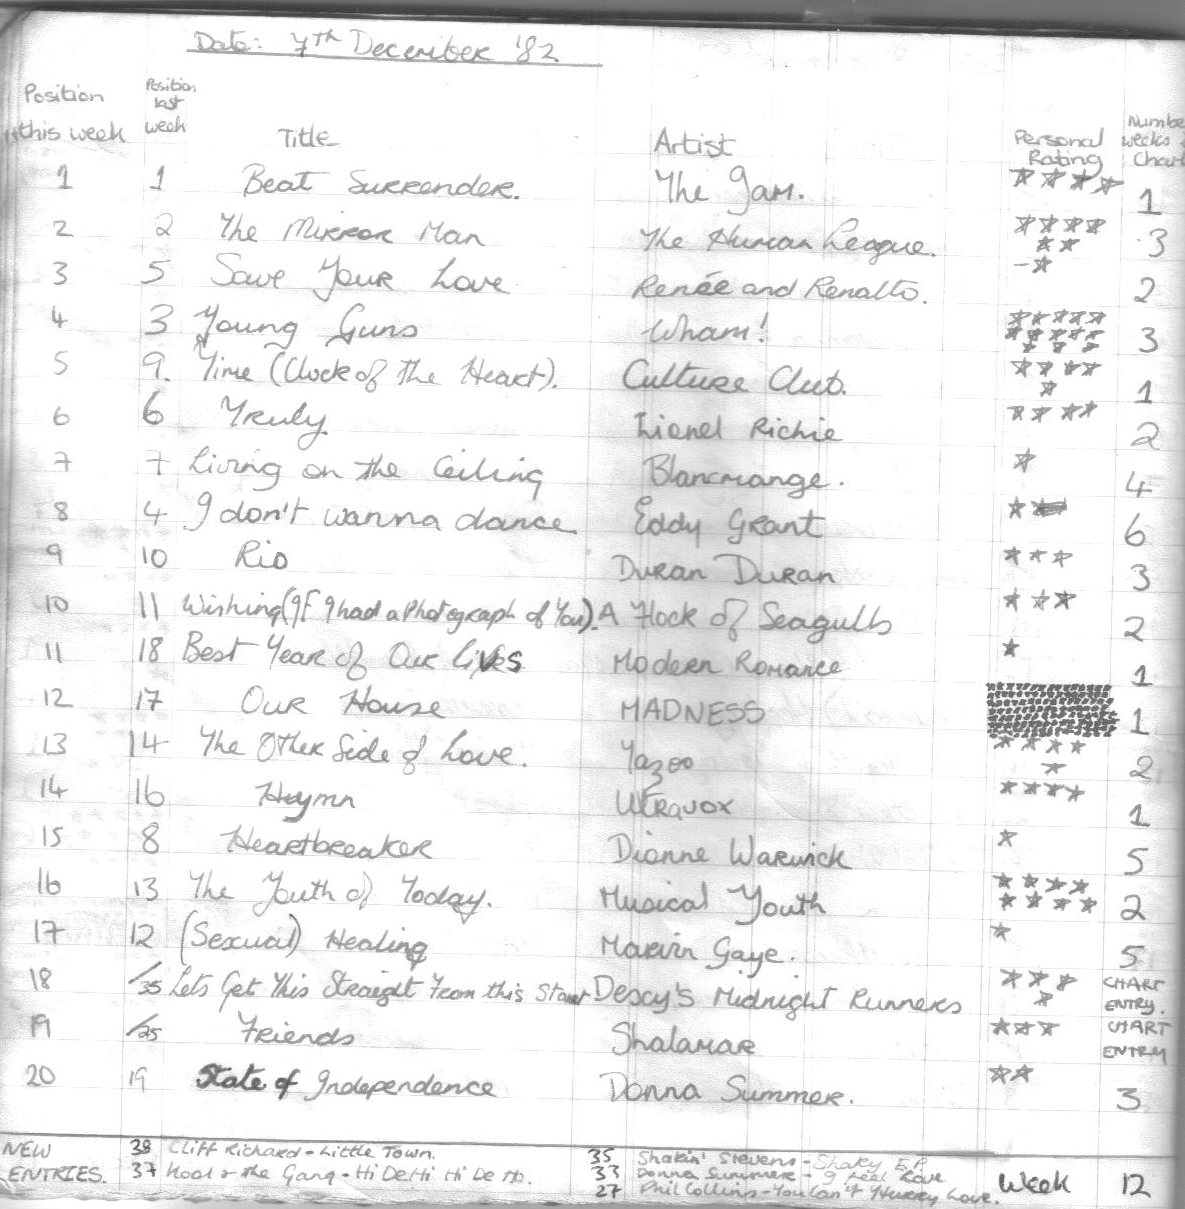 Date: 7th December '82
Position this week Position last week Title Artist Personal Rating Number weeks Chart
1 1 Beat Surrender. The Jam. **** 1
2 2 The Mirror Man The Human League. ****** 3
3 5 Save Your Love Renée and Renatto. -* 2
4 3 Young Guns Wham! 3
5 9. Time (Clock of the Heart). Culture Club. ***** 1
6 6 Truly Lionel Richie **** 2
7 7 Living on the Ceiling Blancmange. * 4
8 4 I don't wanna dance Eddy Grant * 6
9 10 Rio Duran Duran *** 3
10 11 Wishing (If I had a Photograph of You). A Flock of Seagulls *** 2
11 18 Best Year of Our Lives Modern Romance * 1
12 17 Our House MADNESS 1
13 14 The Other Side of Love. Yazoo ***** 2
14 16 Hymn Ultravox **** 1
15 8 Heartbreaker Dionne Warwick * 5
16 13 The Youth of Today. Musical Youth ******** 2
17 12 (Sexual) Healing Marvin Gaye. * 5
18 /35 Lets Get This Straight From this Start Dexy's Midnight Runners **** CHART ENTRY.
19 /25 Friends Shalamar *** CHART ENTRY
20 19 State of Independence Donna Summer. ** 3
NEW ENTRIES.
38 Cliff Richard - Little Town.
37 Kool & the Gang - Hi De Hi Hi De Ho.
35 Shakin' Stevens - Shaky E.P.
33 Donna Summer - I Feel Love
27 Phil Collins - You Can't Hurry Love.
Week 12